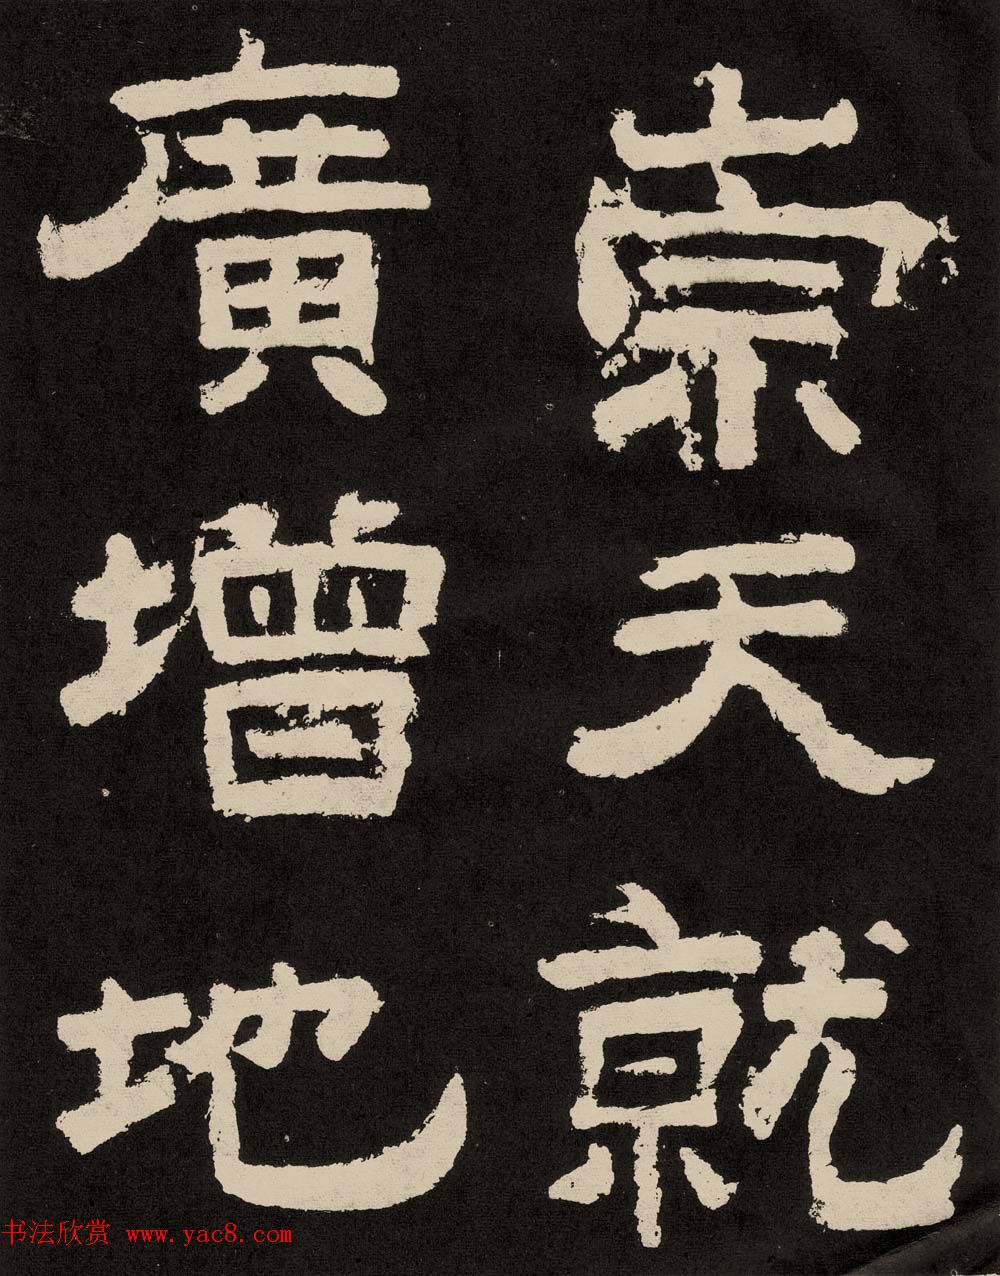 崇天就
廣增地
书法欣赏 www.yac8.com